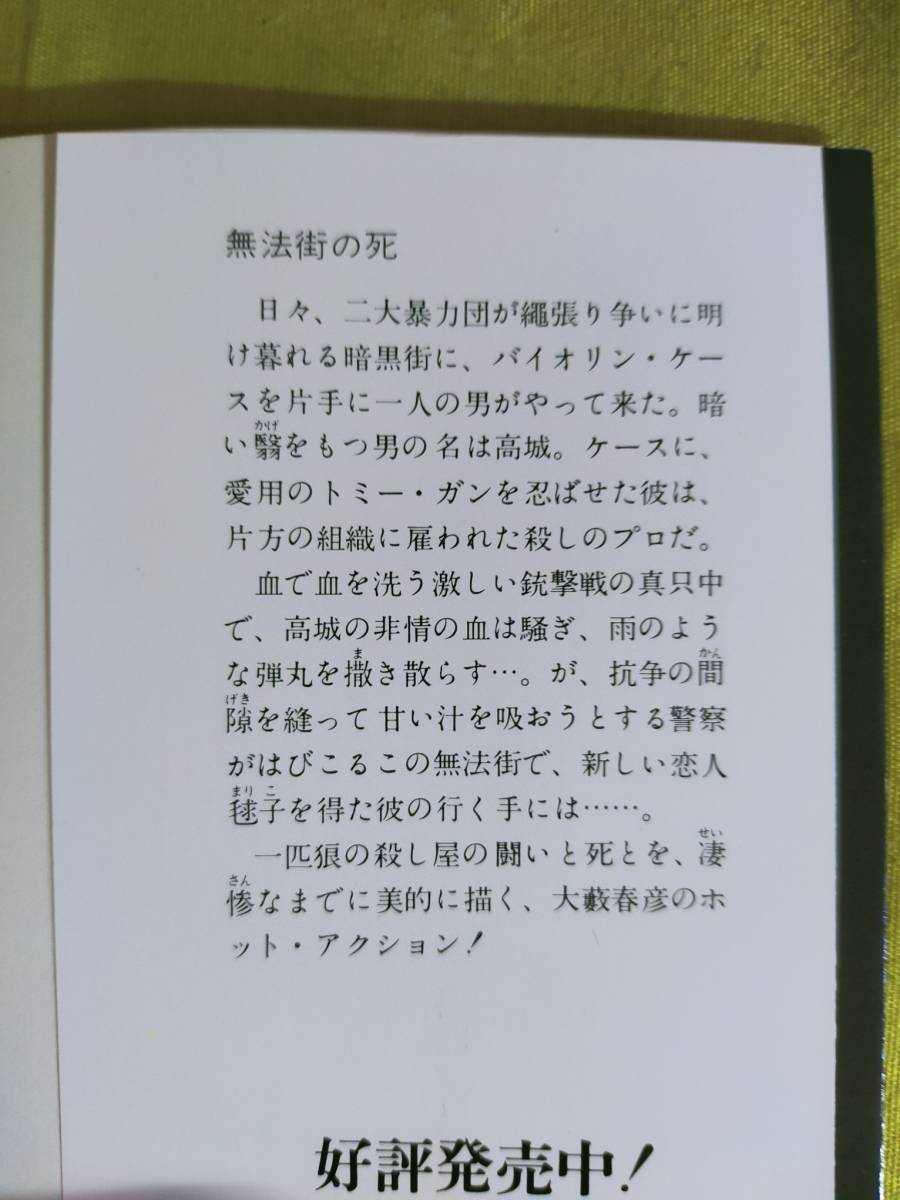 無法街の死
日々、二大暴力団が繩張り争いに明
け暮れる暗黒街に、バイオリン・ケー
スを片手に一人の男がやって来た。暗
い翳をもつ男の名は高城。ケースに、
愛用のトミー・ガンを忍ばせた彼は、
片方の組織に雇われた殺しのプロだ。
血で血を洗う激しい銃撃戦の真只中
で、高城の非情の血は騒ぎ、雨のよう
な弾丸を撒き散らす…。が、抗争の間
隙を縫って甘い汁を吸おうとする警察
がはびこるこの無法街で、新しい恋人
毬子を得た彼の行く手には……。
一匹狼の殺し屋の闘いと死とを、凄
惨なまでに美的に描く、大藪春彦のホ
ット・アクション!
好評発売中!